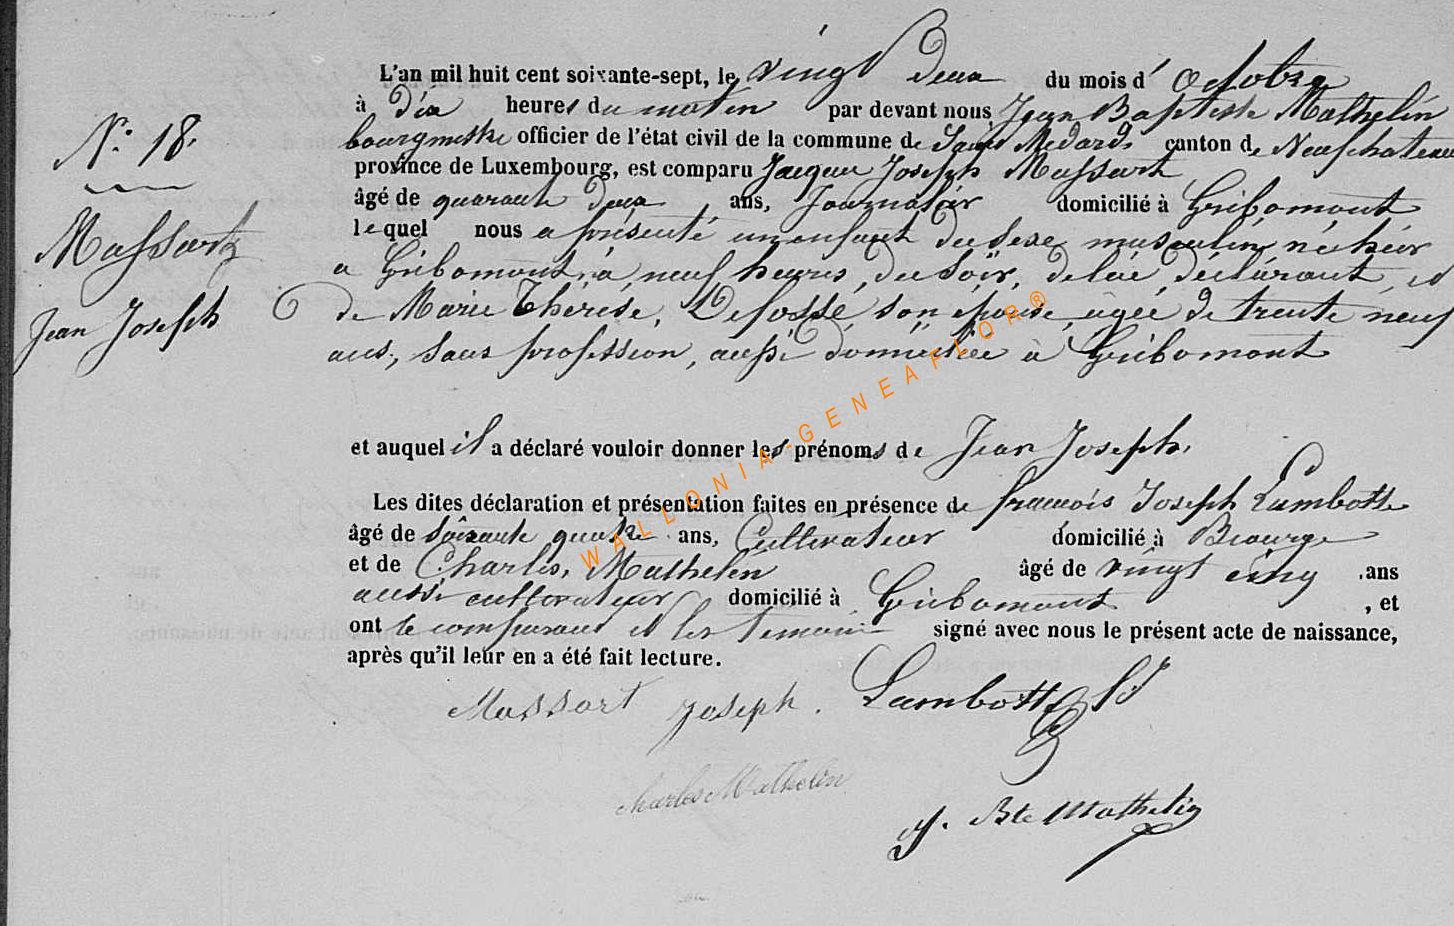 N.° 18.
Massart
Jean Joseph
L'an mil huit cent soixante-sept, le vingt Deux du mois d'octobre
à Dix heures du matin par devant nous Jean Baptiste Mathelin
bourgmestre officier de l'état civil de la commune de Saint Médard, canton de Neufchateau
province de Luxembourg, est comparu Jacques Joseph Massart
âgé de quarante deux ans, Journalier domicilié à Gribomont
lequel nous a présenté un enfant du sexe masculin né hier
a Gribomont, à neuf heures, du soir, de lui, déclarant, et
de Marie Thérèse, Defossé son épouse agée de trente neuf
ans, sans profession, aussi domiciliée à Gribomont
et auquel il a déclaré vouloir donner les prénoms de Jean Joseph.
Les dites déclaration et présentation faites en présence de francois Joseph Lambotte
âgé de soixante quatre ans, Cultivateur domicilié à Biourge
et de Charles, Mathelin âgé de vingt cinq ans
aussi cultivateur domicilié à Gribomont, et
ont le comparant et les temoins signé avec nous le présent acte de naissance,
après qu'il leur en a été fait lecture.
Massart Joseph. Lambotte fJ
charles Mathelin
J. Bte Mathelin
WALLONIA-GENEAFLOR®